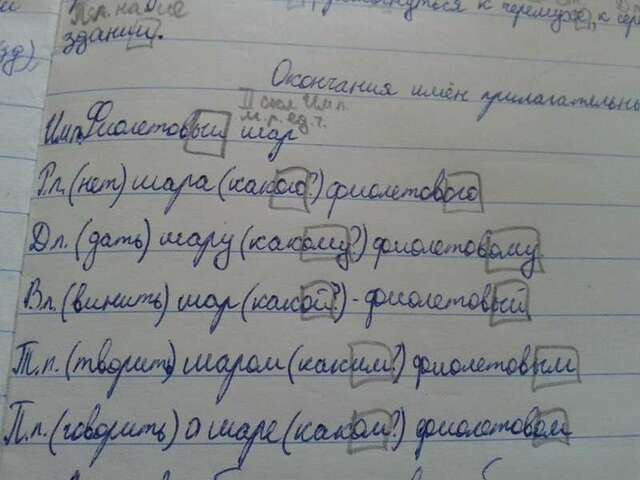 П.п. на
здании.
к черемухе, к
Окончания имён прилагательных
II скл. И.п.
м.р. ед.ч.
И.п. Фиолетовый шар
Р.п. (нет) шара (какого?) фиолетового
Д.п. (дать) шару (какому?) фиолетовому
В.п. (винить) шар (какой?) - фиолетовый
Т.п. (творить) шаром (каким?) фиолетовым
П.п. (говорить) о шаре (каком?) фиолетовом